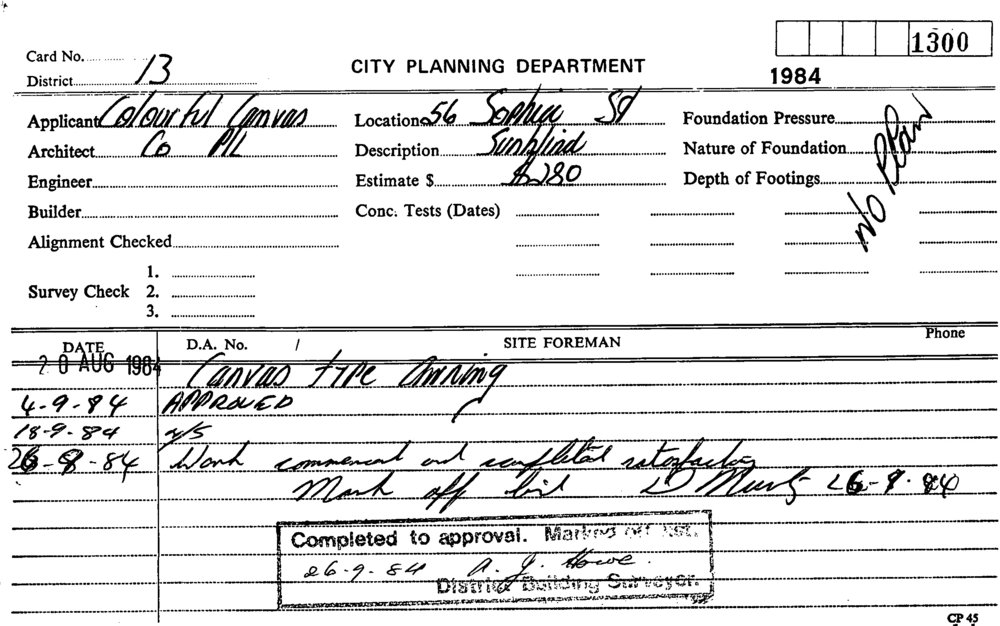 1300
Card No.
District 13
CITY PLANNING DEPARTMENT
1984
Applicant Colourful Canvas
Location 56 Sophia St
Foundation Pressure
Architect Co P/L
Description Sunblind
Nature of Foundation
Engineer
Estimate $ $280
Depth of Footings
No Plan
Builder
Conc. Tests (Dates)
Alignment Checked
Survey Check
1.
2.
3.
DATE
D.A. No. /
SITE FOREMAN
Phone
20 AUG 1984 Canvas type Awning
4-9-84 APPROVED
18-9-84 N/S
26-9-84 Work commenced and completed satisfactory
Mark off list D 26-9-84
Completed to approval. Marked off list.
26-9-84 A. J. Howe
District Building Surveyor.
CP 45